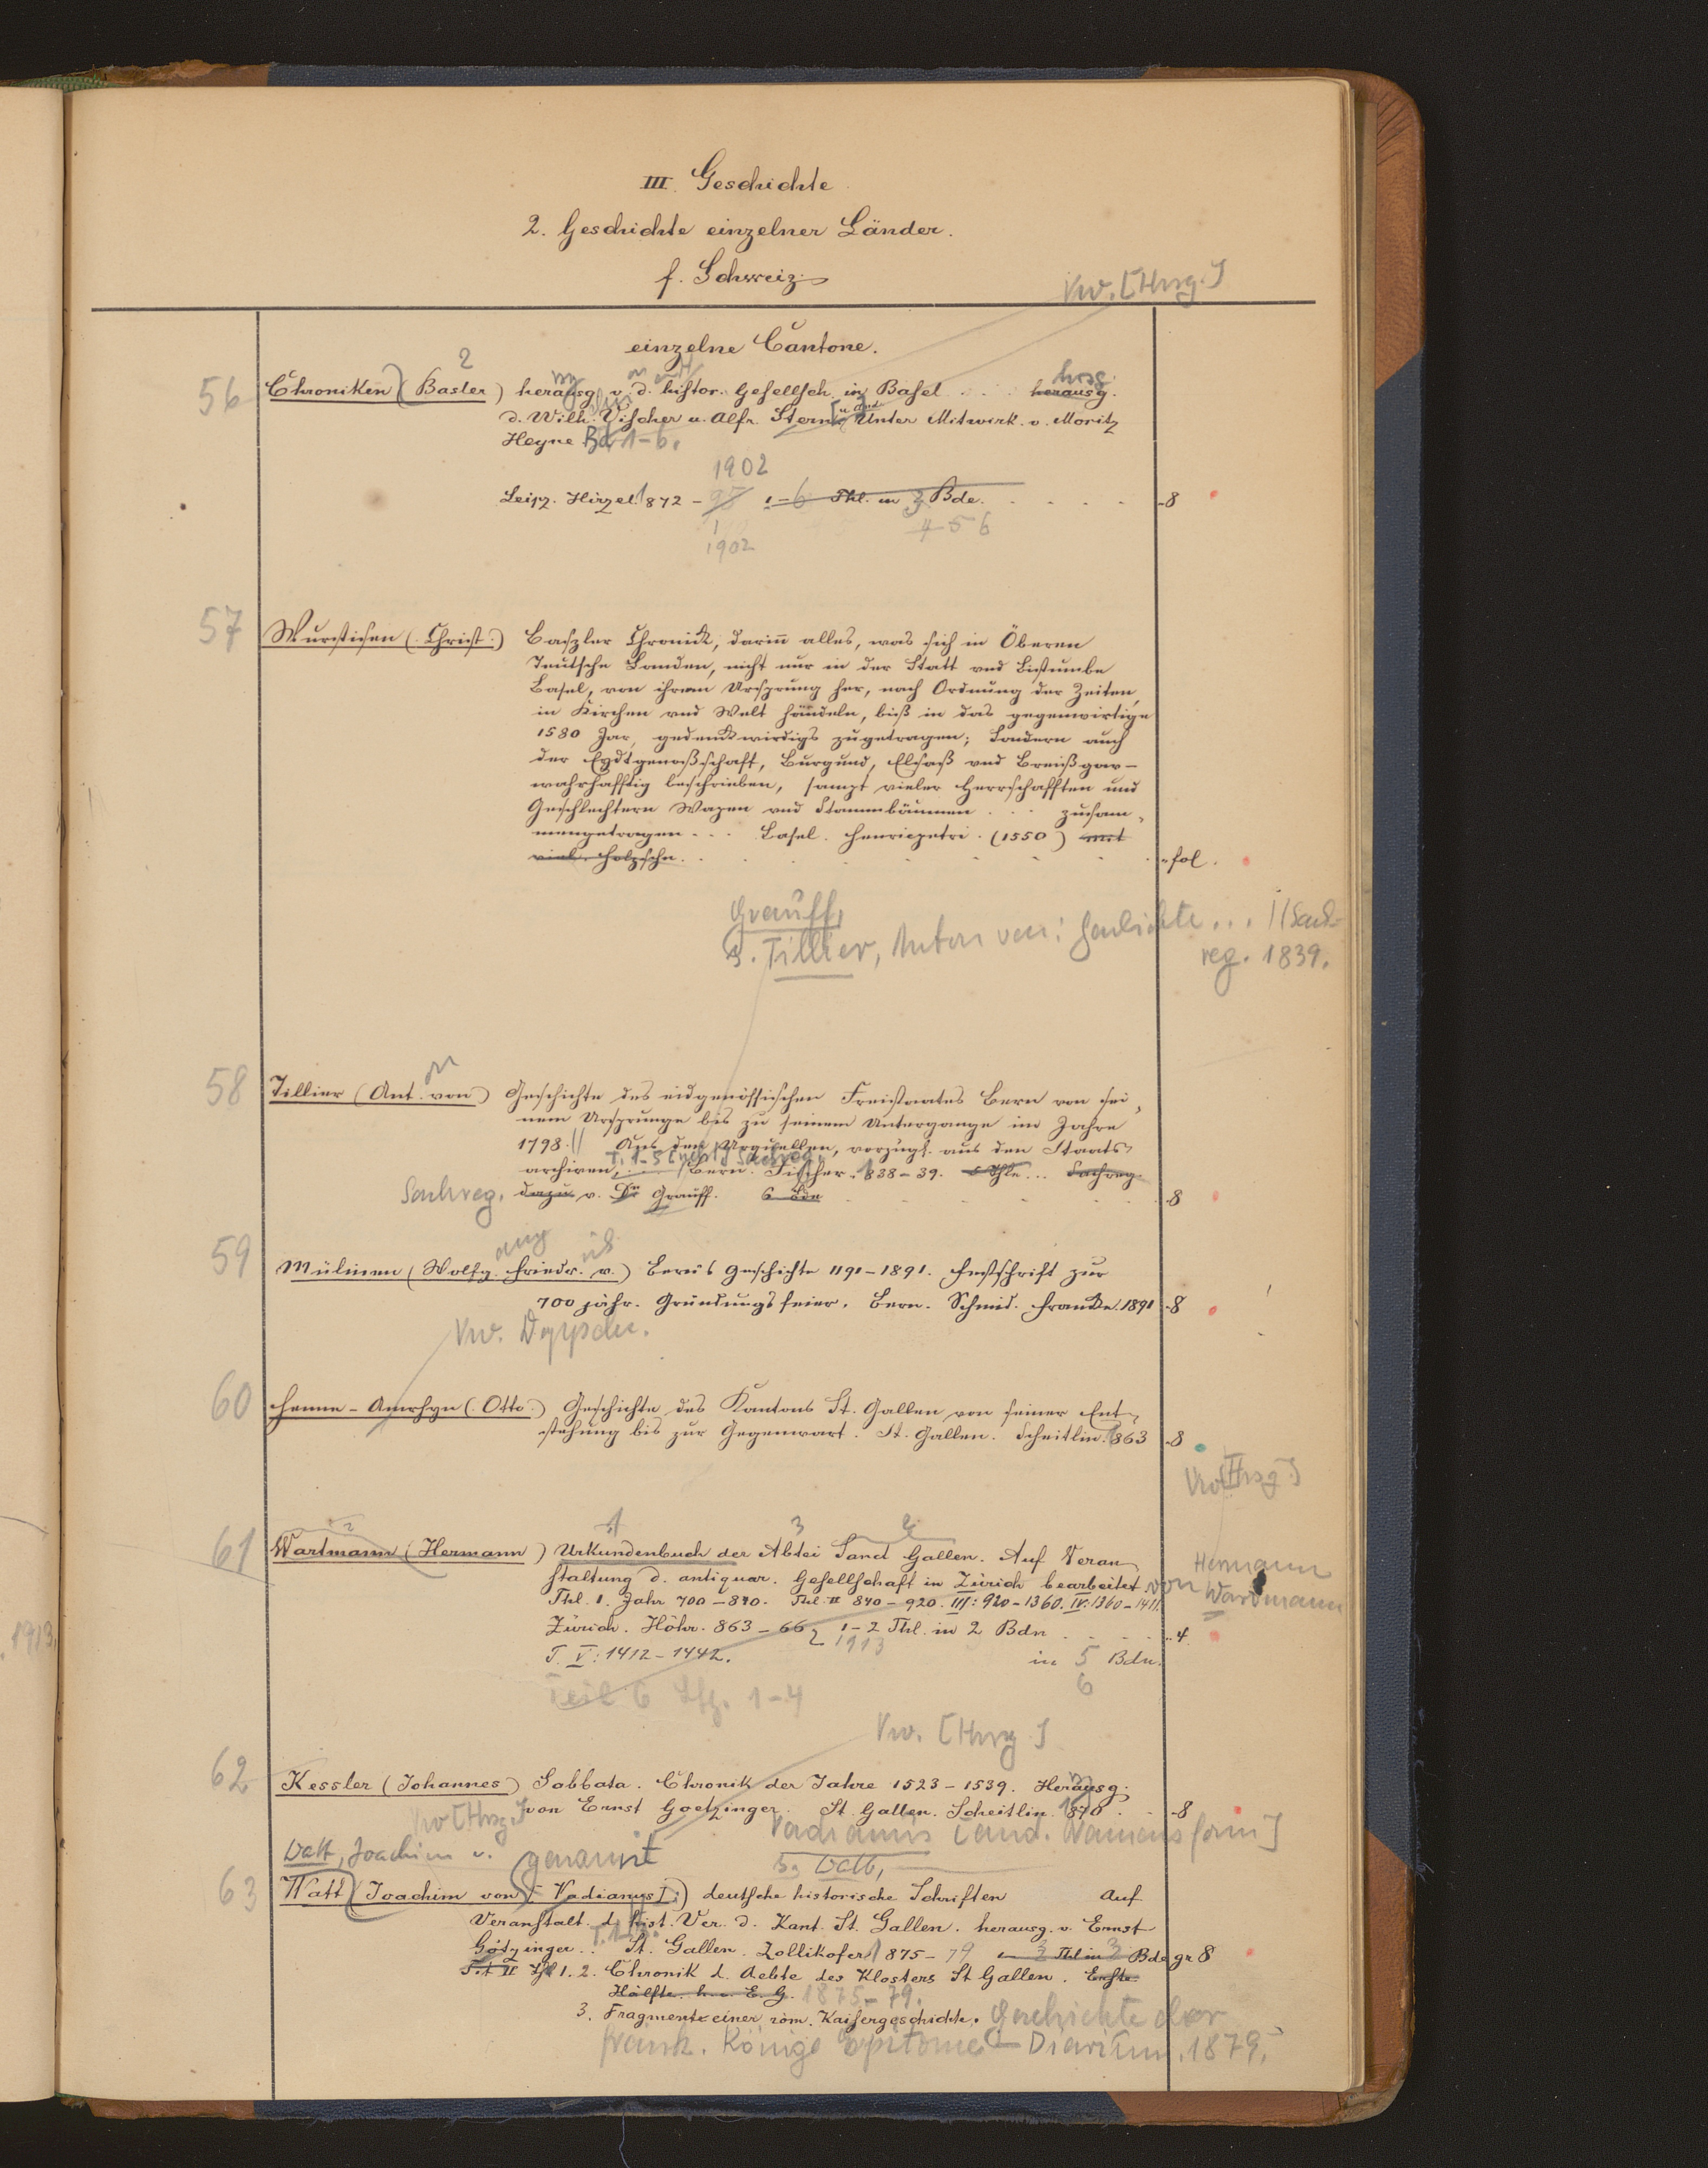 III. Geschichte
2. Geschichte einzelner Länder.
f. Schweiz
Vw. [Hrsg.]
einzelne Cantone.
2
56 Chroniken (Basler) herausg. v. d. histor. Gesellsch. in Basel . . . herausg. hrsg.
d. Wilh. Vischer u. Alfr. Stern u. and. Unter Mitwirk. v. Moritz
Heyne Bd 1-6.
1902
Leipz. Hirzel. 1872 - 95 1-6 Thl. in 3 Bde. . . . . 8
4 5 6
1902
57 Wurstisen (Christ.) Baszler Chronick, darinn alles, was sich in Oberen
Teutsche Landen, nicht nur in der Statt und Bistumbe
Basel, von ihrem Ursprung her, nach Ordnung der Zeiten,
in Kirchen und Welt händeln, biß in das gegenwirtige
1580 Jar, gedenckwirdigs zugetragen; Sondern auch
der Eydtgenoßschaft, Burgund, Elsaß und Breißgow-
warhafftig beschrieben, sampt vieler Herrschafften und
Geschlechtern Wapen und Stammbäumen . . . zusam-
mengetragen . . . Basel. Henricpetri. (1550) mit
viel. Holzschn. . . . fol.
Grauff,
s. Tillier, Anton von: Geschichte . . . // Sach-
reg. 1839.
58 Tillier (Ant. von) Geschichte des eidgenössischen Freistaates Bern von sei-
nem Ursprunge bis zu seinem Untergange im Jahre
1798. // Aus den Urquellen, vorzügl. aus den Staats-
T. 1-5 [nebst] Sachreg.
archiven, . . . Bern. Fischer. 1838-39. 5 Thle . . . Sachreg.
Sachreg. dazu v. Dr Grauff. 6 Bde 8
59 Mülinen (Wolfg. Friedr. v.) Bern's Geschichte 1191-1891. Festschrift zur
700 jähr. Gründungsfeier. Bern. Schmid. Francke. 1891 8
Vw. Doppschr.
60 Henne-Amrhyn (Otto) Geschichte des Kantons St. Gallen von seiner Ent-
stehung bis zur Gegenwart. St. Gallen. Scheitlin. 1863 8
Vw. [Hrsg.]
1 3 2
61 Wartmann (Hermann) Urkundenbuch der Abtei Sanct Gallen. Auf Veran-
staltung d. antiquar. Gesellschaft in Zürich bearbeitet von Hermann Wartmann
Thl. I. Jahr 700-840. Thl. II 840-920. III: 920-1360. IV: 1360-1411.
Zürich. Höhr. 863-66 1-2 Thl. in 2 Bdn . . . 4
1913
T. V: 1412-1442. in 5 Bdn.
6
Teil 6 Lfg. 1-4
Vw. [Hrsg]
62 Kessler (Johannes) Sabbata. Chronik der Jahre 1523-1539. Herausg.
von Ernst Goetzinger. St. Gallen. Scheitlin. 1870 . . 8
Vw [Hrsg.]
Vadianus [and. Namensform]
Watt, Joachim v. genannt
s. Watt,
63 Watt (Joachim von [Vadianus].) deutsche historische Schriften Auf
Veranstalt. d. hist. Ver. d. Kant. St. Gallen. herausg. v. Ernst
Götzinger . . St. Gallen. Zollikofer 1875-79 3 Thl in 3 Bde gr 8
1. 2. Chronik d. Aebte des Klosters St Gallen. Erste
Hälfte. E. G. 1875-79.
3. Fragmente einer röm. Kaisergeschichte. Geschichte der
fränk. Könige Epitome - Diarium. 1879.
1913.